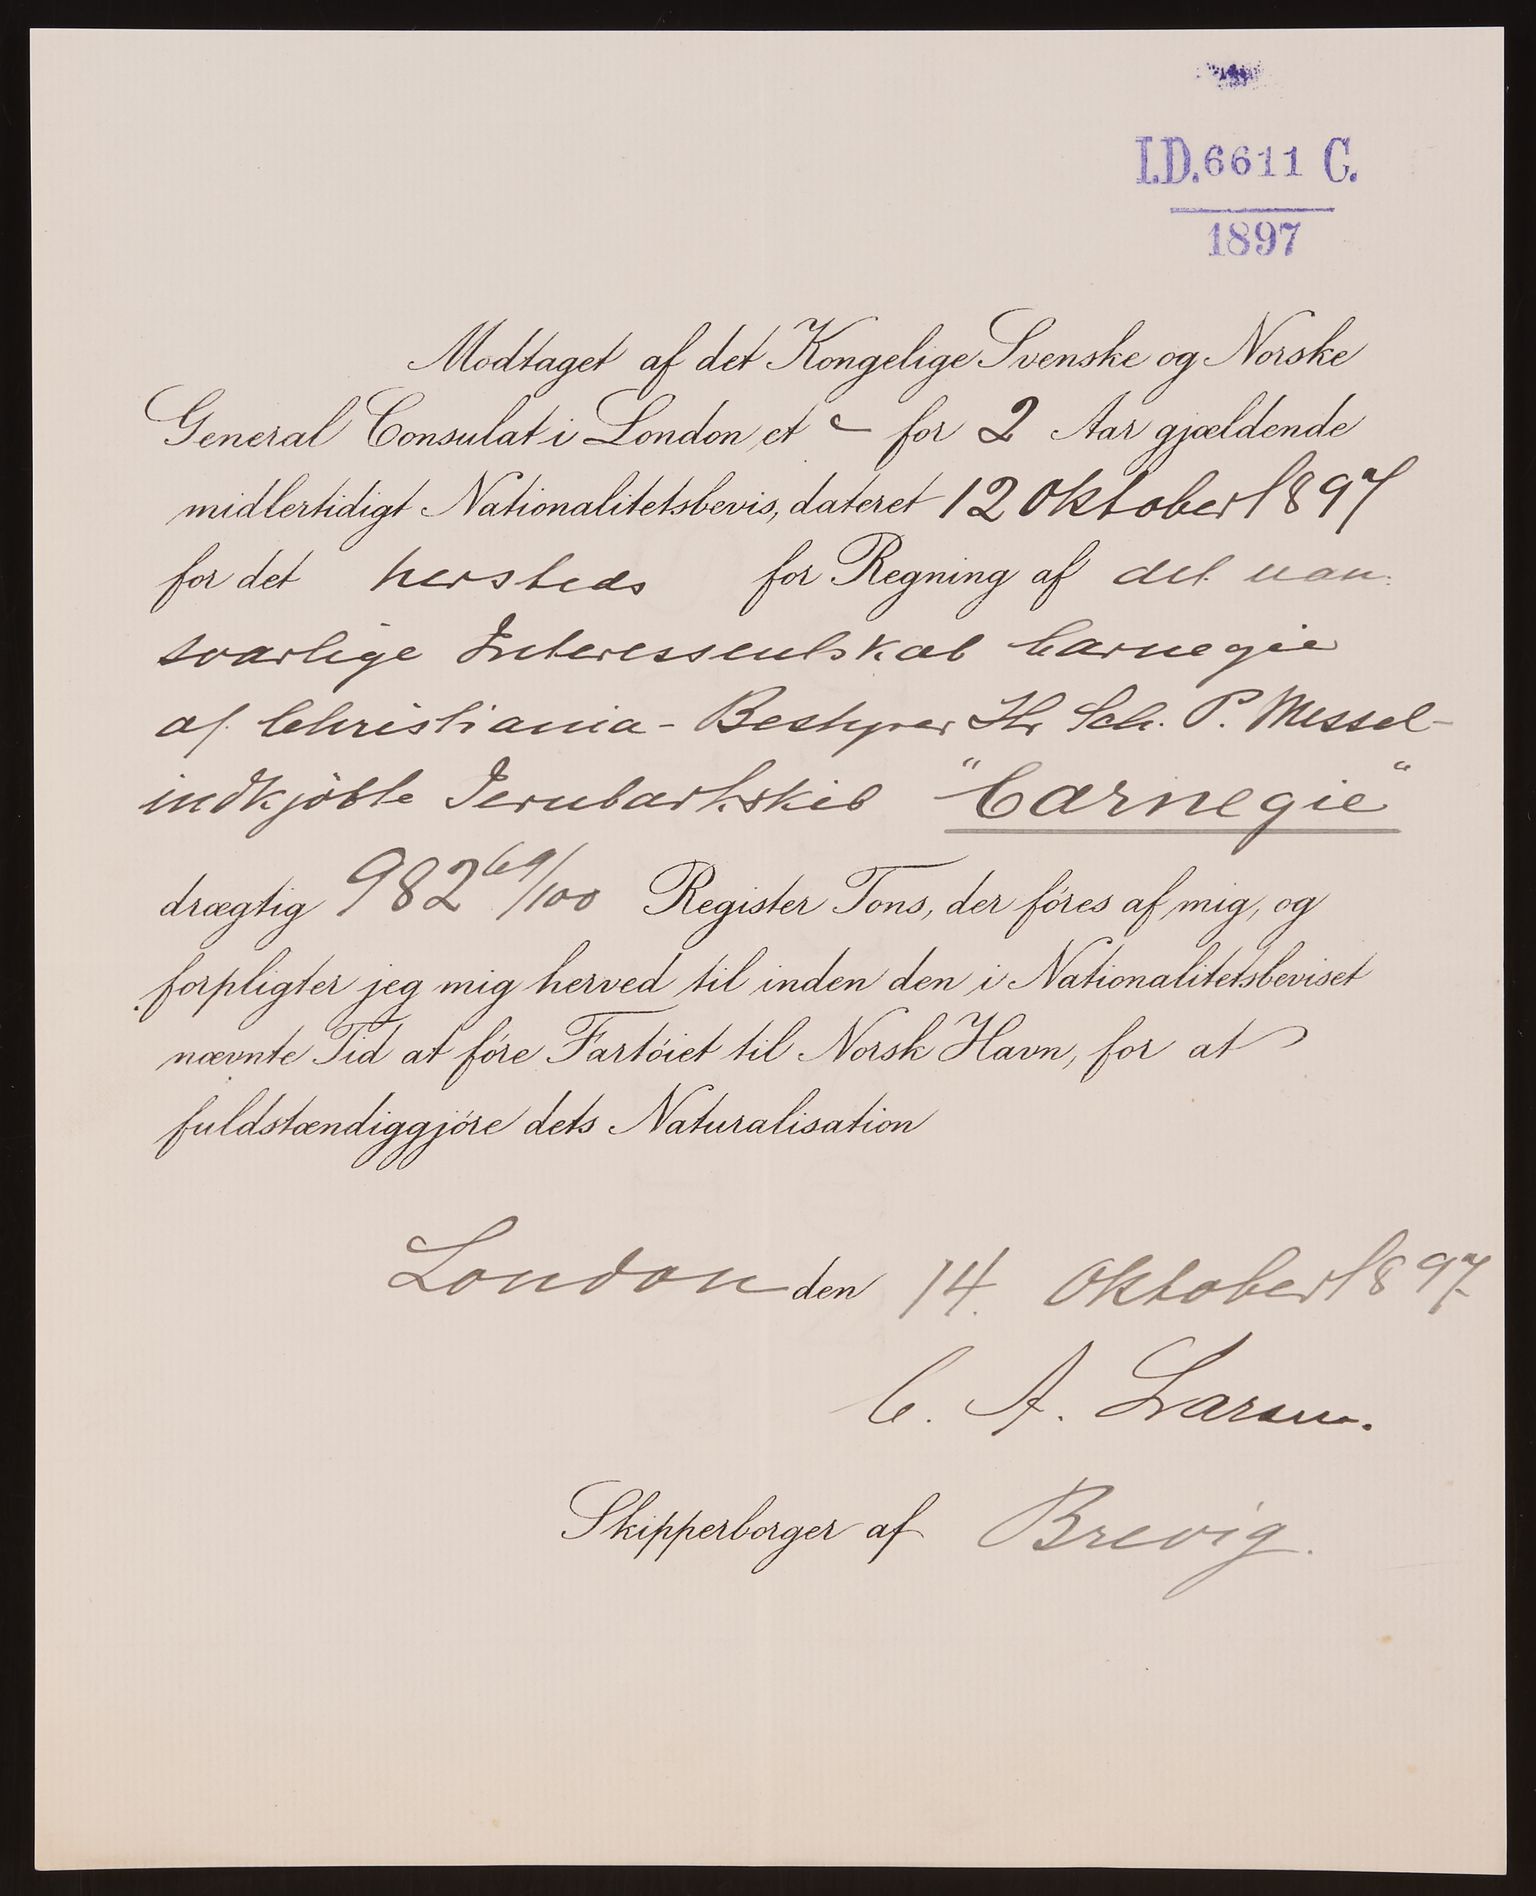 I.D. 6611 C.
1897
Modtaget af det Kongelige Svenske og Norske
General Consulat i London et – for 2 Aar gjældende
midlertidigt Nationalitetsbevis, dateret 12 Oktober 1897
for det hersteds for Regning af det uan-
svarlige Interessentskab Carnegie
af Christiania - Bestyrer Hr Sch. P. Messel -
indkjöbte Jernbarkskib "Carnegie"
drægtig 982 69/100 Register Tons, der föres af mig, og
forpligter jeg mig herved til inden den i Nationalitetsbeviset
nævnte Tid at före Fartöiet til Norsk Havn, for at
fuldstændiggjöre dets Naturalisation
London den 14. Oktober 1897
C. A. Larsen.
Skipperborger af Brevig.